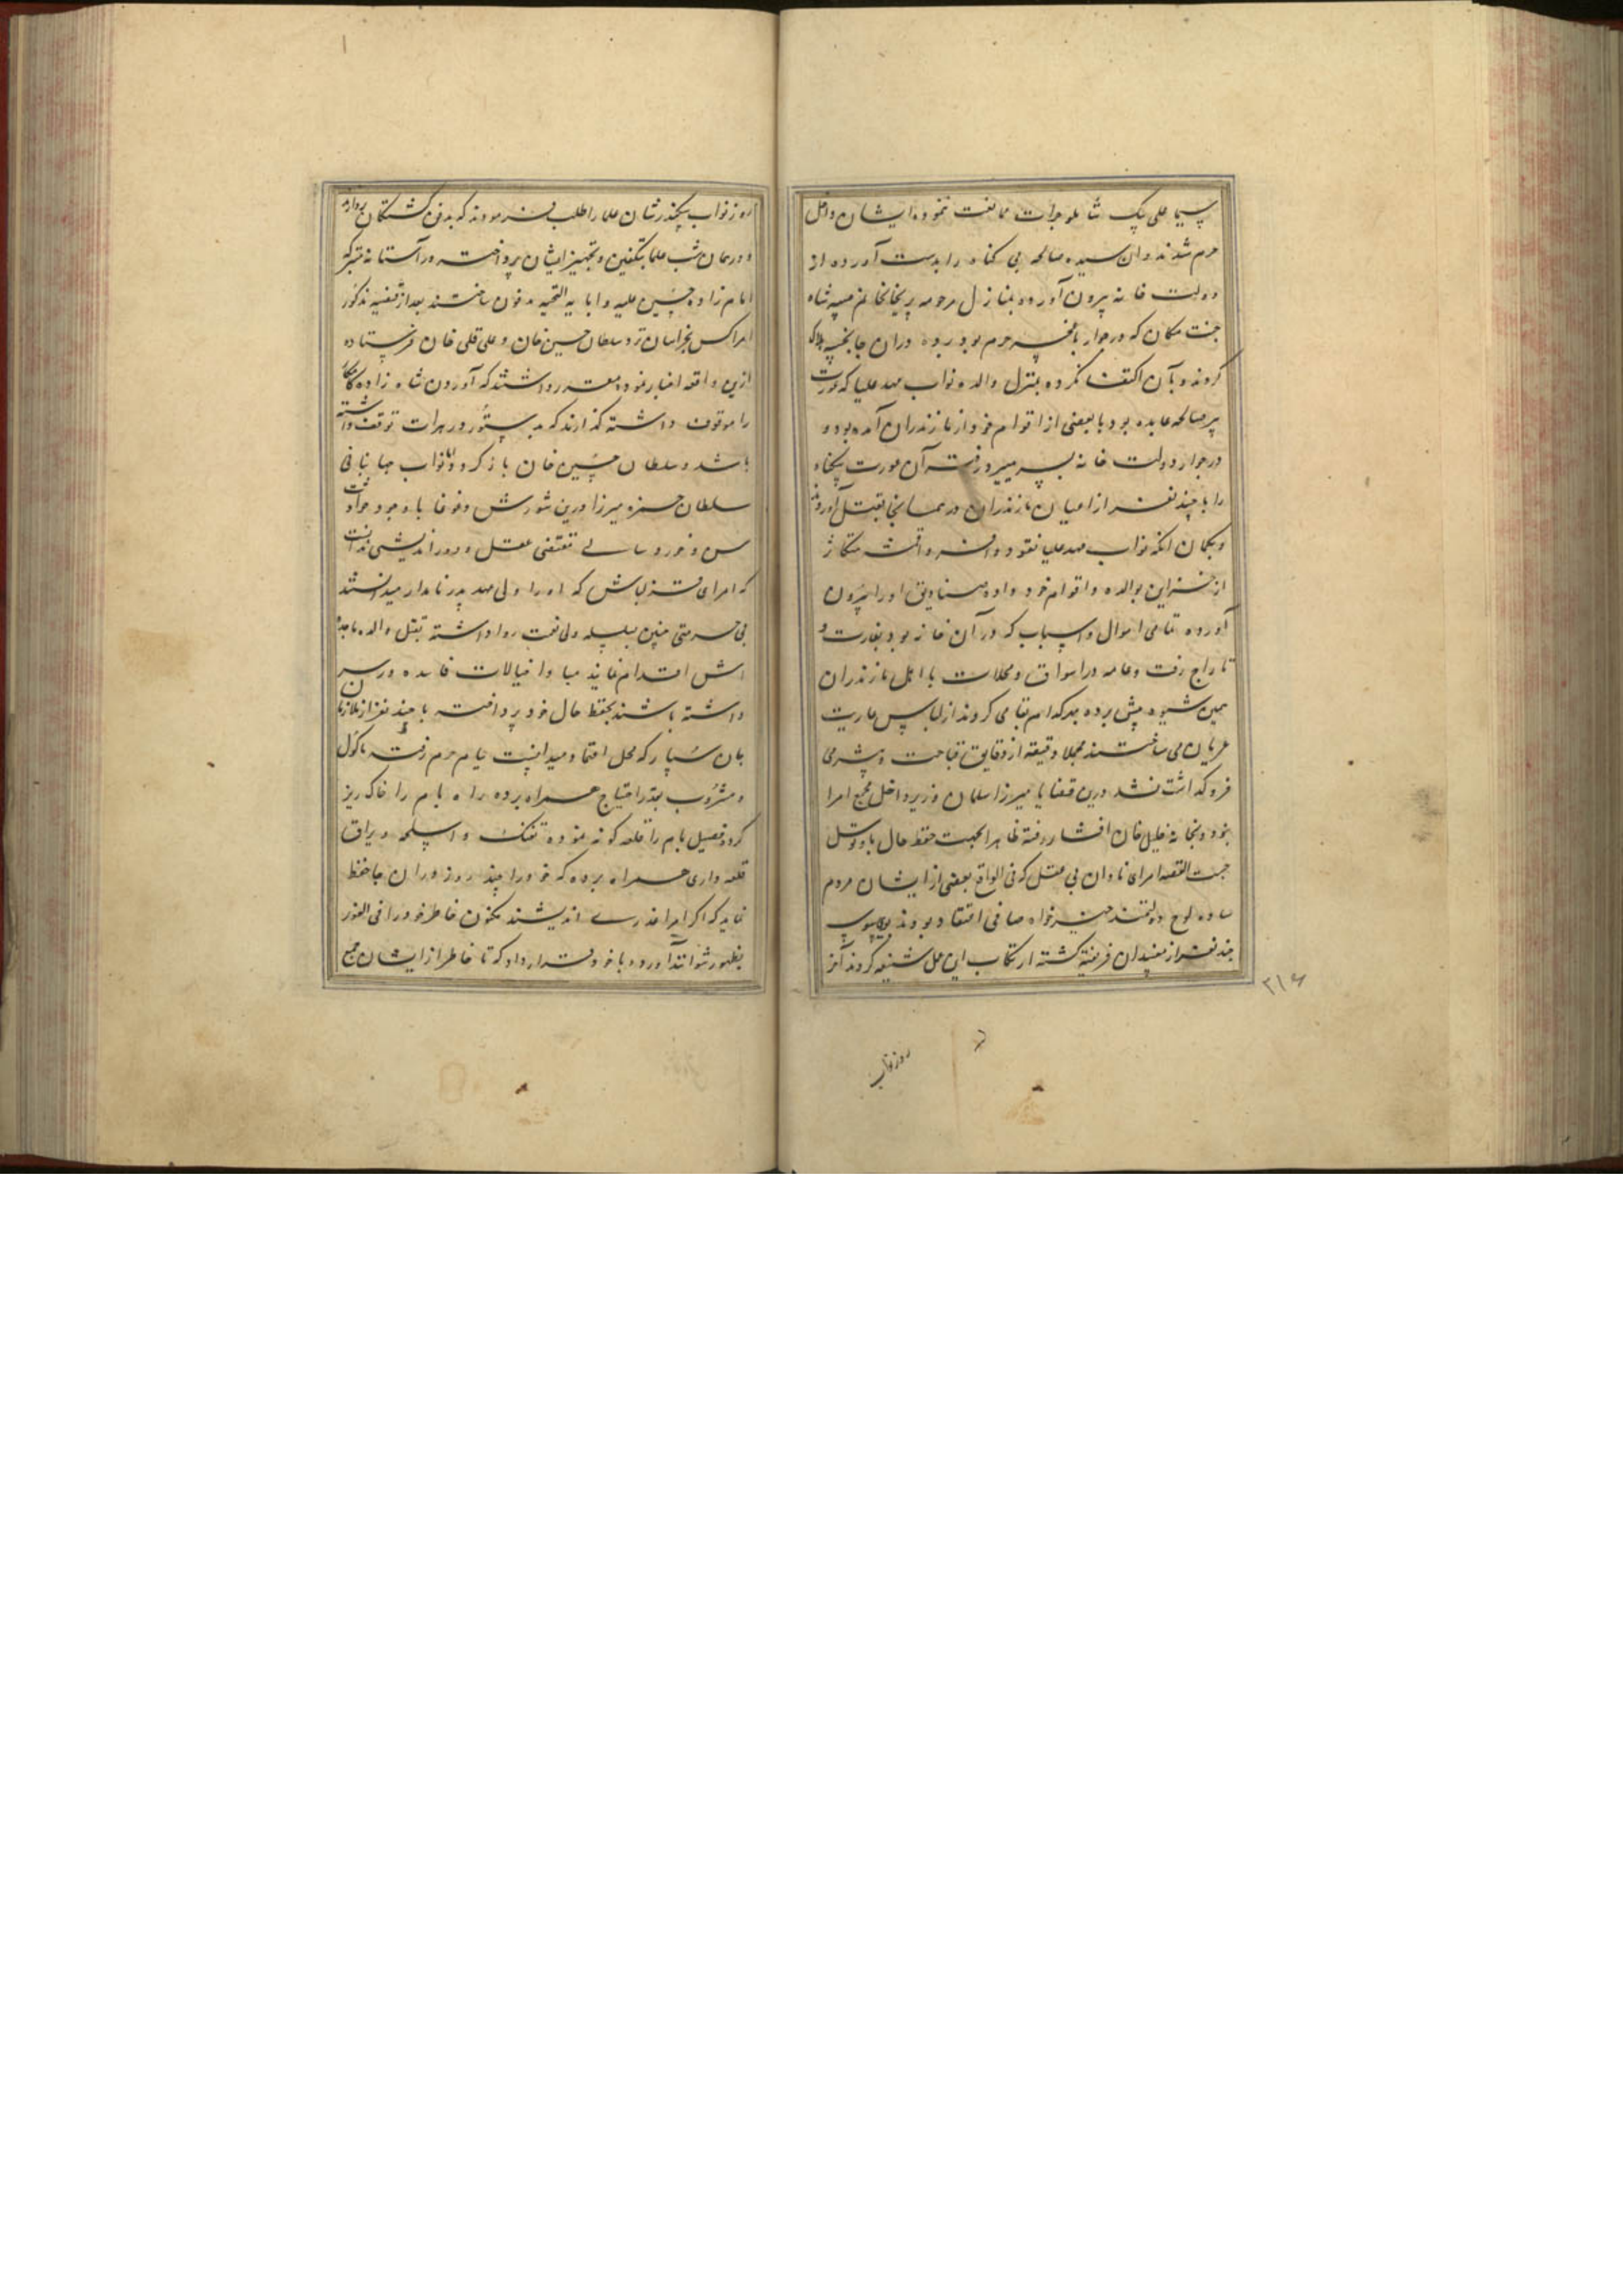 سیما علی بیک شاملو جرات ممانعت ننموده ایشان داخل
حرم شدند و ان سیده صالحه بی کناه را بدست آورده از
دولت خانه بیرون آورده و بمنازل مرحومه پریخانخانم صبیه شاه
جنت مکان که در جوار باغچه حرم بود برده دران جا بخبه هلاک
کردند و بآن اکتفا نکرده بمنزل والده نواب مهد علیا که عورت
پیر صالحه عابده بود با بعضی از اقوام خود از مازندران آمده بود و
در جوار دولت خانه بسر میبرد رفته آن عورت بیکناه
را با چند نفر از اعیان مازندران در همانجا بقتل آوردند
و بکمان انکه نواب مهد علیا نقود وافره و اقمشه متکاثر
از خزاین بوالده و اقوام خود داده صنادیق او را بیرون
آورده تمامی اموال و اسباب که در آن خانه بود بغارت و
تاراج رفت و عامه در اسواق و محلات با اهل مازندران
همین شیوه پیش برده بهر کدام تهامی کردند از لباس عاریت
عریان می ساختند مجملا دقیقه از دقایق قباحت و بیشرمی
فروکذاشت نشد درین قضایا میرزا سلمان وزیر داخل مجمع امرا
نبود و بخانه خلیل خان افشار رفته ظاهرا بجهت حفظ حال باو توسل
جست القصه امرای نادان بی عقل که فی الواقع بعضی از ایشان مردم
ساده لوح دولتمند خیرخواه صافی اعتقاد بودند بوسوسه
چند نفر از مفسدان فریفته کشته ارتکاب این عمل شنیعه کردند آخر
۳۱۶
روز نواب
روز نواب سکندرشان علما را طلب فرمودند که بدفن کشتکان پردازند
و در همان شب علما بتکفین و تجهیز ایشان پرداخته در آستانه متبرکه
امام زاده حسین علیه و ابایه التحیه مدفون ساختند بعد از قضیه مذکور
امرا کس بخراسان نزد سلطان حسین خان و علی قلی خان فرستاده
ازین واقعه اخبار نموده مقرر داشتند که آوردن شاه زاده کامکار
را موقوف داشته کذارند که بدستور در هرات توقف داشته
باشد و سلطان حسین خان باز کردد اما نواب جهانبانی
سلطان حمزه میرزا درین شورش و غوغا با وجود حداثت
سن و خورد سالی مقتضی عقل و دوراندیشی ندانست
که امرای قزلباش که او را ولی عهد پدر نامدار میدانستند
بی حرمتی چنین بسلسله ولی نعمت روا داشته بقتل والده ماجده
اش اقدام نمایند مبادا خیالات فاسده در سر
داشته باشند بحفظ حال خود پرداخته با چند نفر از ملازمان
جان سپار که محل اعتماد میدانست ببام حرم رفته ماکول
و مشروب بقدر احتیاج همراه برده راه بام را خاک ریز
کرد و فصیل بام را قلعه کونه نموده تفنک و اسلحه و یراق
قلعه داری همراه برده که خود را چند روز دران جا حفظ
نماید که اکر امرا غدری اندیشند مکنون خاطر خود را فی الفور
بظهور نتوانند آورد و با خود قرار داد که تا خاطر از ایشان جمع